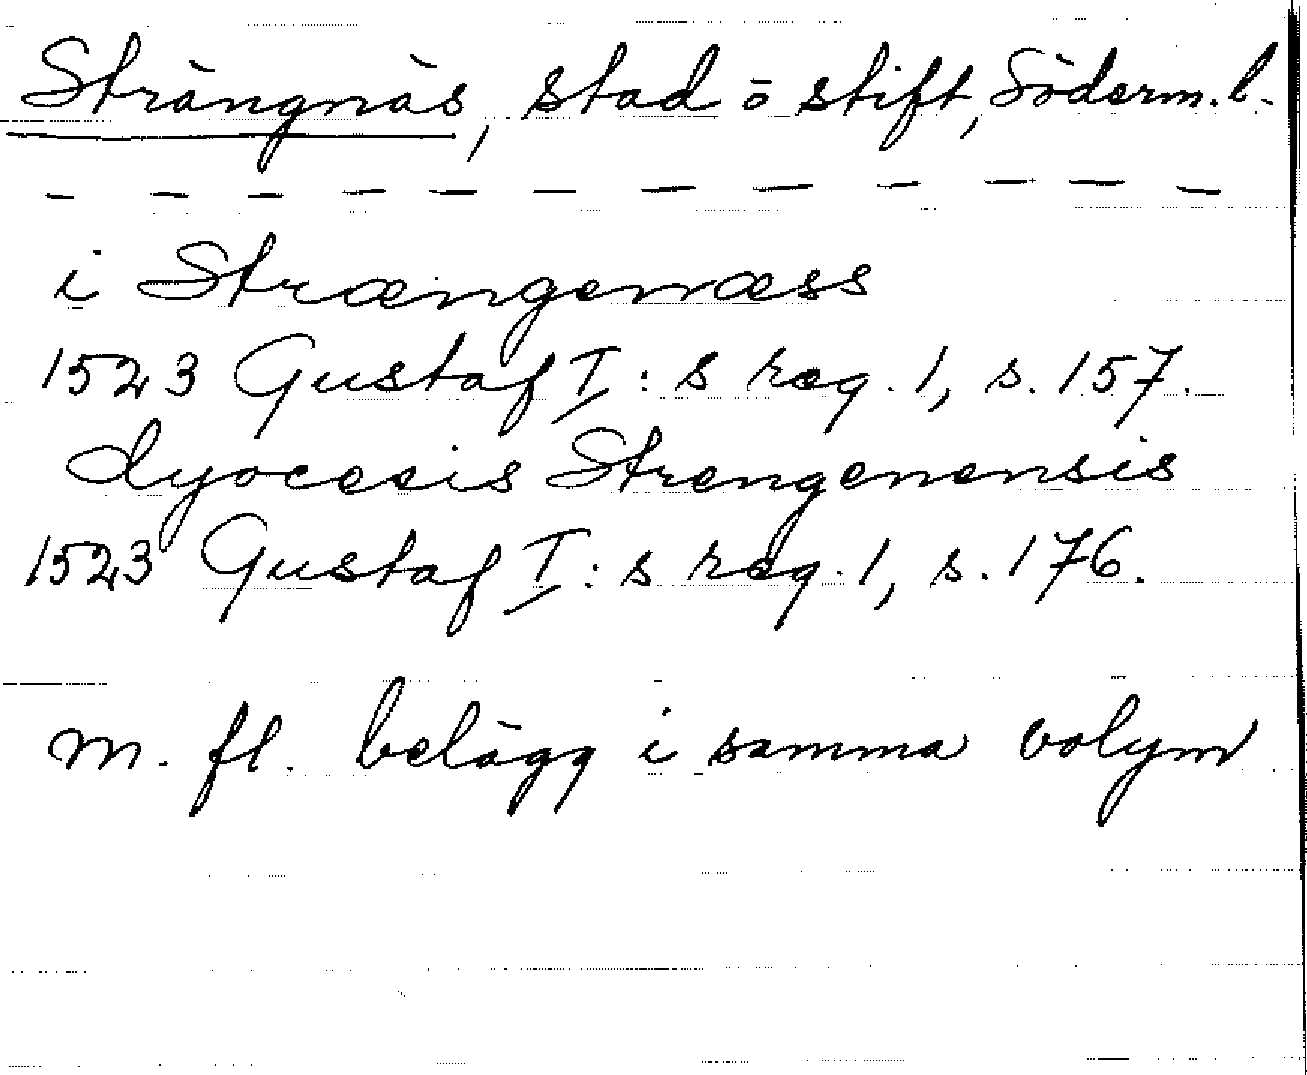 Strängnäs, stad o stift, Söderm. l.
i Strængenæss
1523 Gustaf I:s reg. 1, s. 157.
dyocesis Strengenensis
1523 Gustaf I:s reg. 1, s. 176.
m. fl. belägg i samma volym